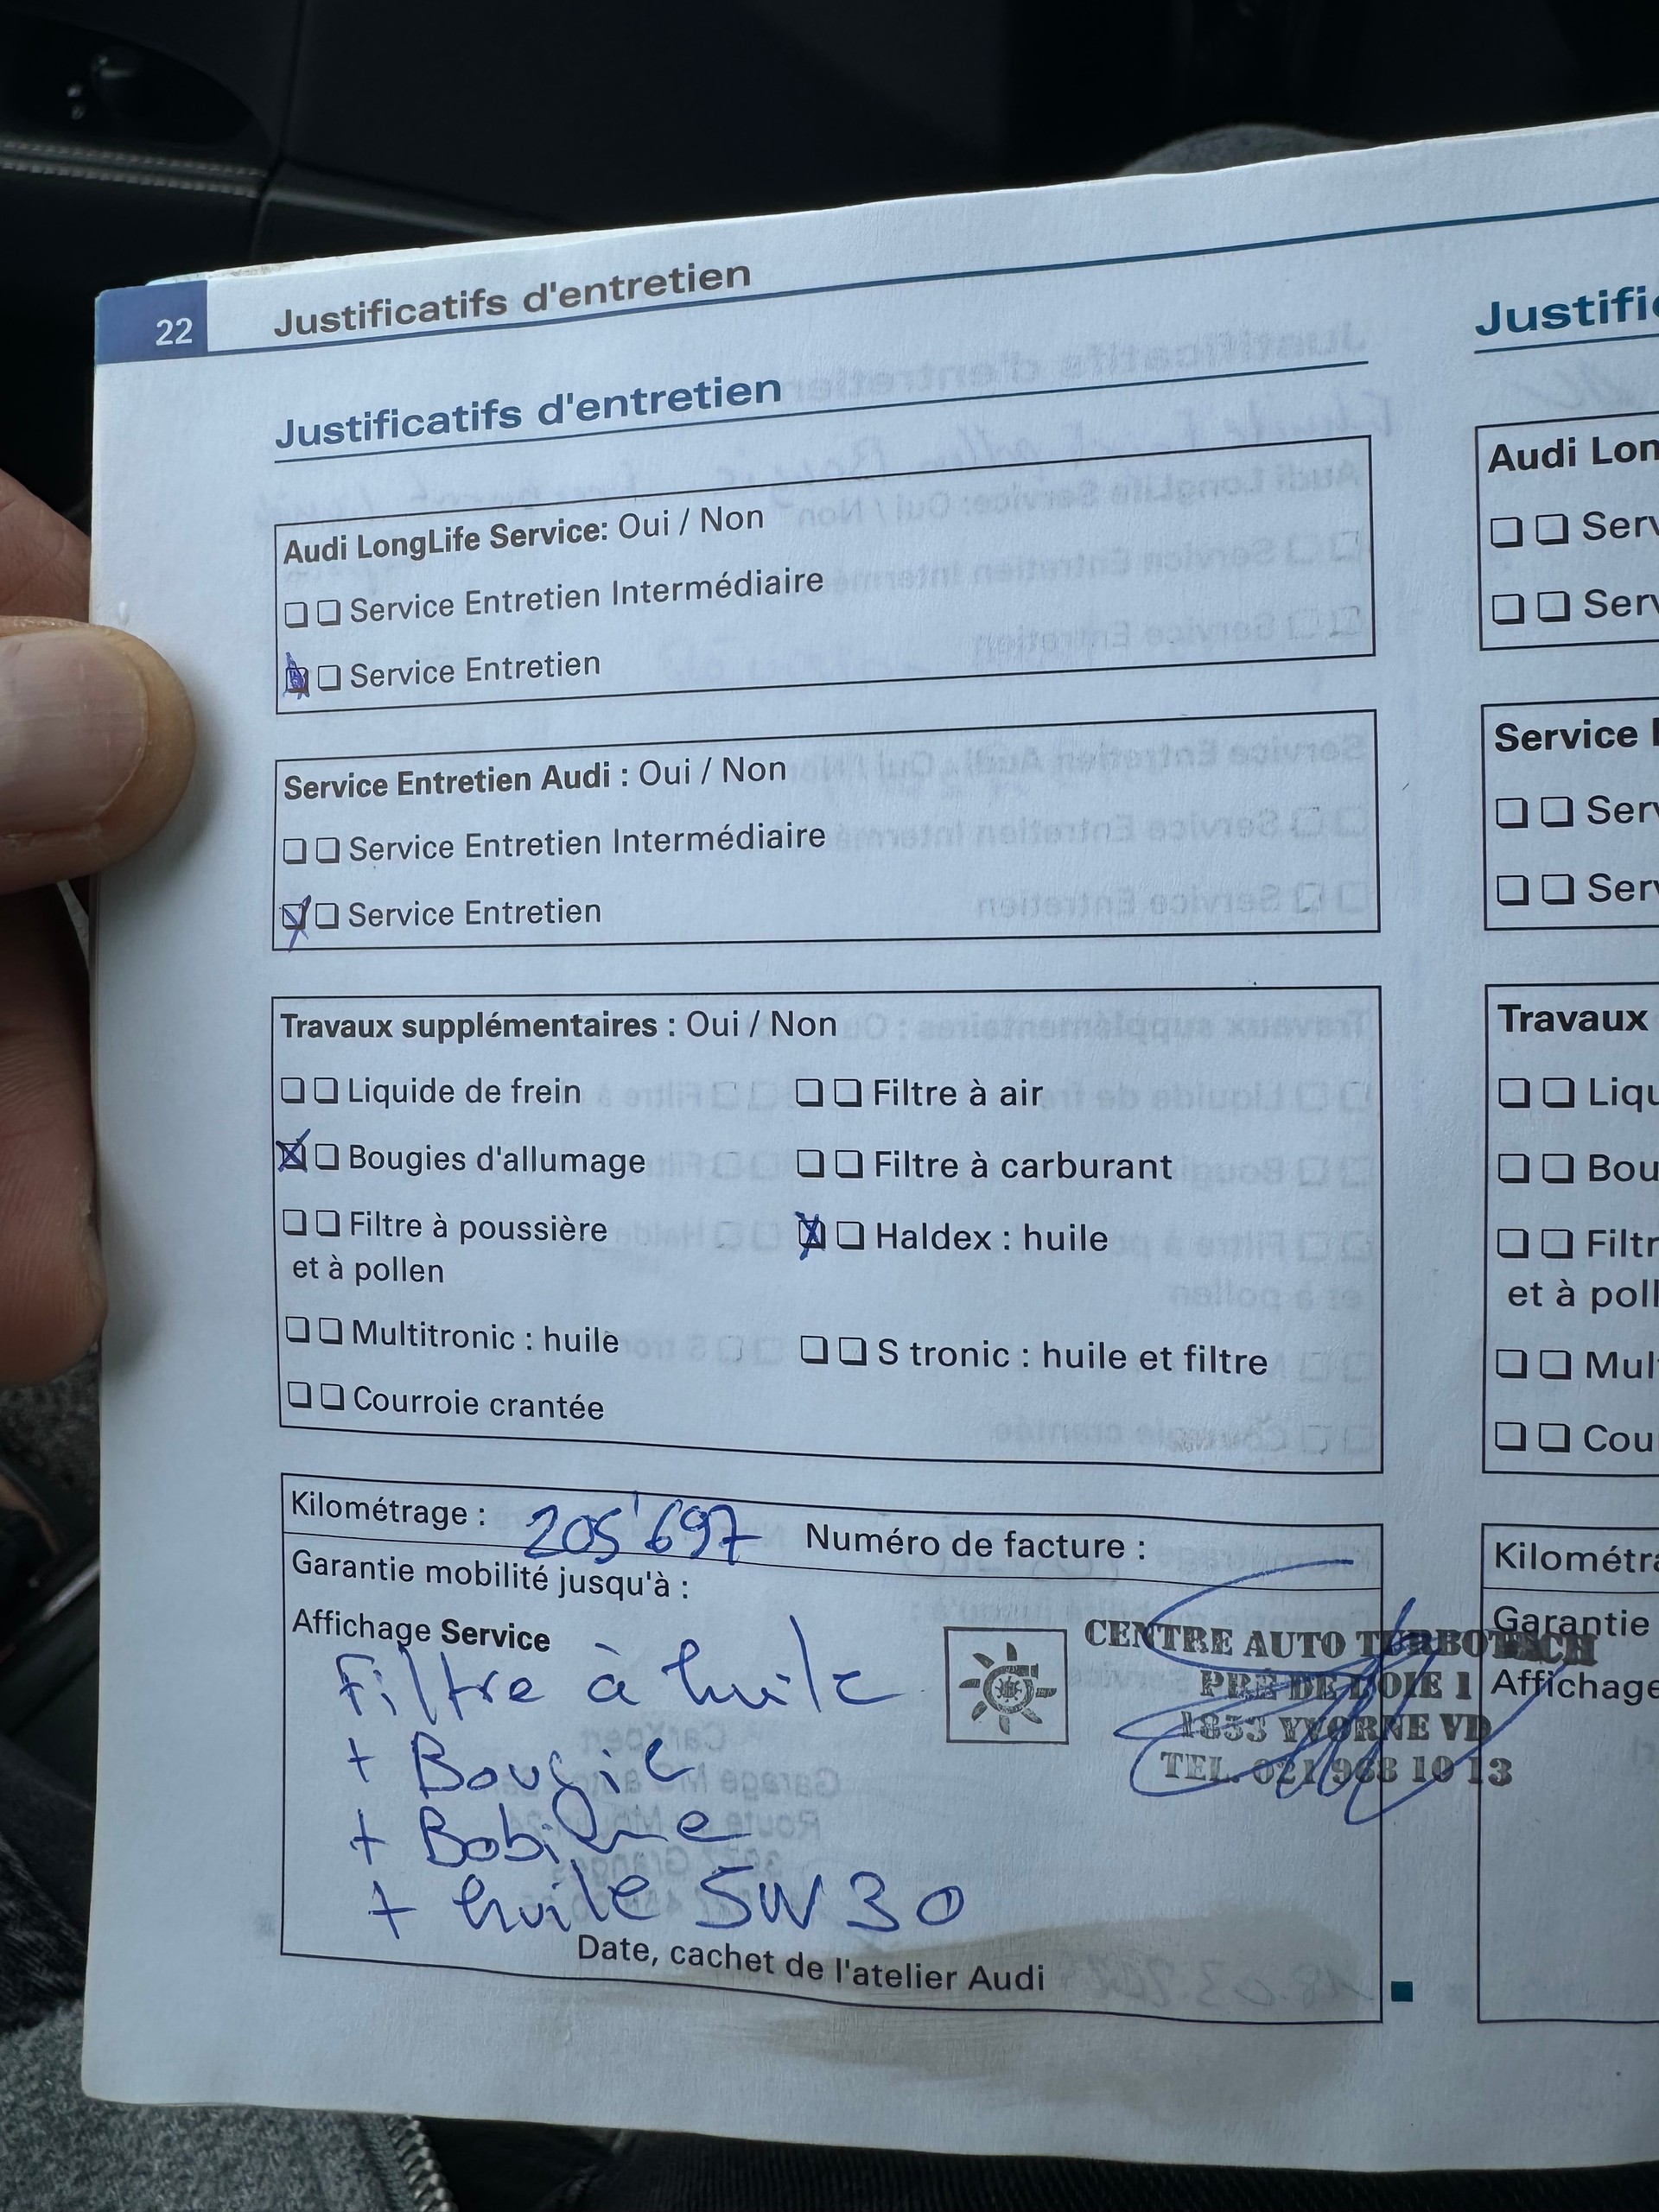 22 Justificatifs d'entretien
Justificatifs d'entretien
Audi LongLife Service: Oui / Non
Service Entretien Intermédiaire
Service Entretien
Service Entretien Audi : Oui / Non
Service Entretien Intermédiaire
Service Entretien
Travaux supplémentaires : Oui / Non
Liquide de frein
Filtre à air
Bougies d'allumage
Filtre à carburant
Filtre à poussière
et à pollen
Haldex : huile
Multitronic : huile
S tronic : huile et filtre
Courroie crantée
Kilométrage : 205'697 Numéro de facture :
Garantie mobilité jusqu'à :
Affichage Service
Filtre à huile
+ Bougie
+ Bobine
+ huile 5W30
CENTRE AUTO TURBOTECH
PRÉ DE L'OIE 1
1853 YVORNE VD
TEL. 021 968 10 13
Date, cachet de l'atelier Audi
Justific
Audi Lon
Serv
Serv
Service
Serv
Serv
Travaux
Liqu
Bou
Filtr
et à poll
Mul
Cou
Kilométra
Garantie
Affichage